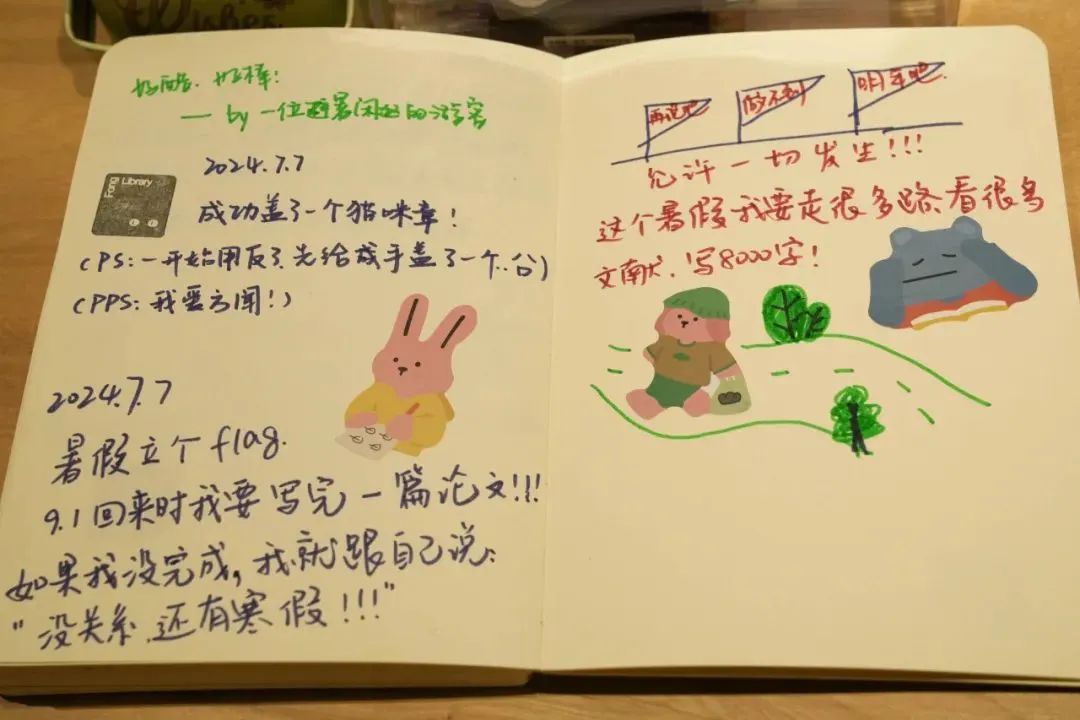 好酷,好棒!
— by 一位避暑闲逛的游客
2024.7.7
Fang Library
成功盖了一个猫咪章!
(PS:一开始用反了,先给我手盖了一个.
(PPS:我要方闻!)
2024.7.7
暑假立个flag.
9.1回来时我要写完一篇论文!!!
如果我没完成,我就跟自己说:
"没关系,还有寒假!!!"
再说吧
做不到
明年吧
允许一切发生!!!
这个暑假我要走很多路、看很多
文献,写8000字!